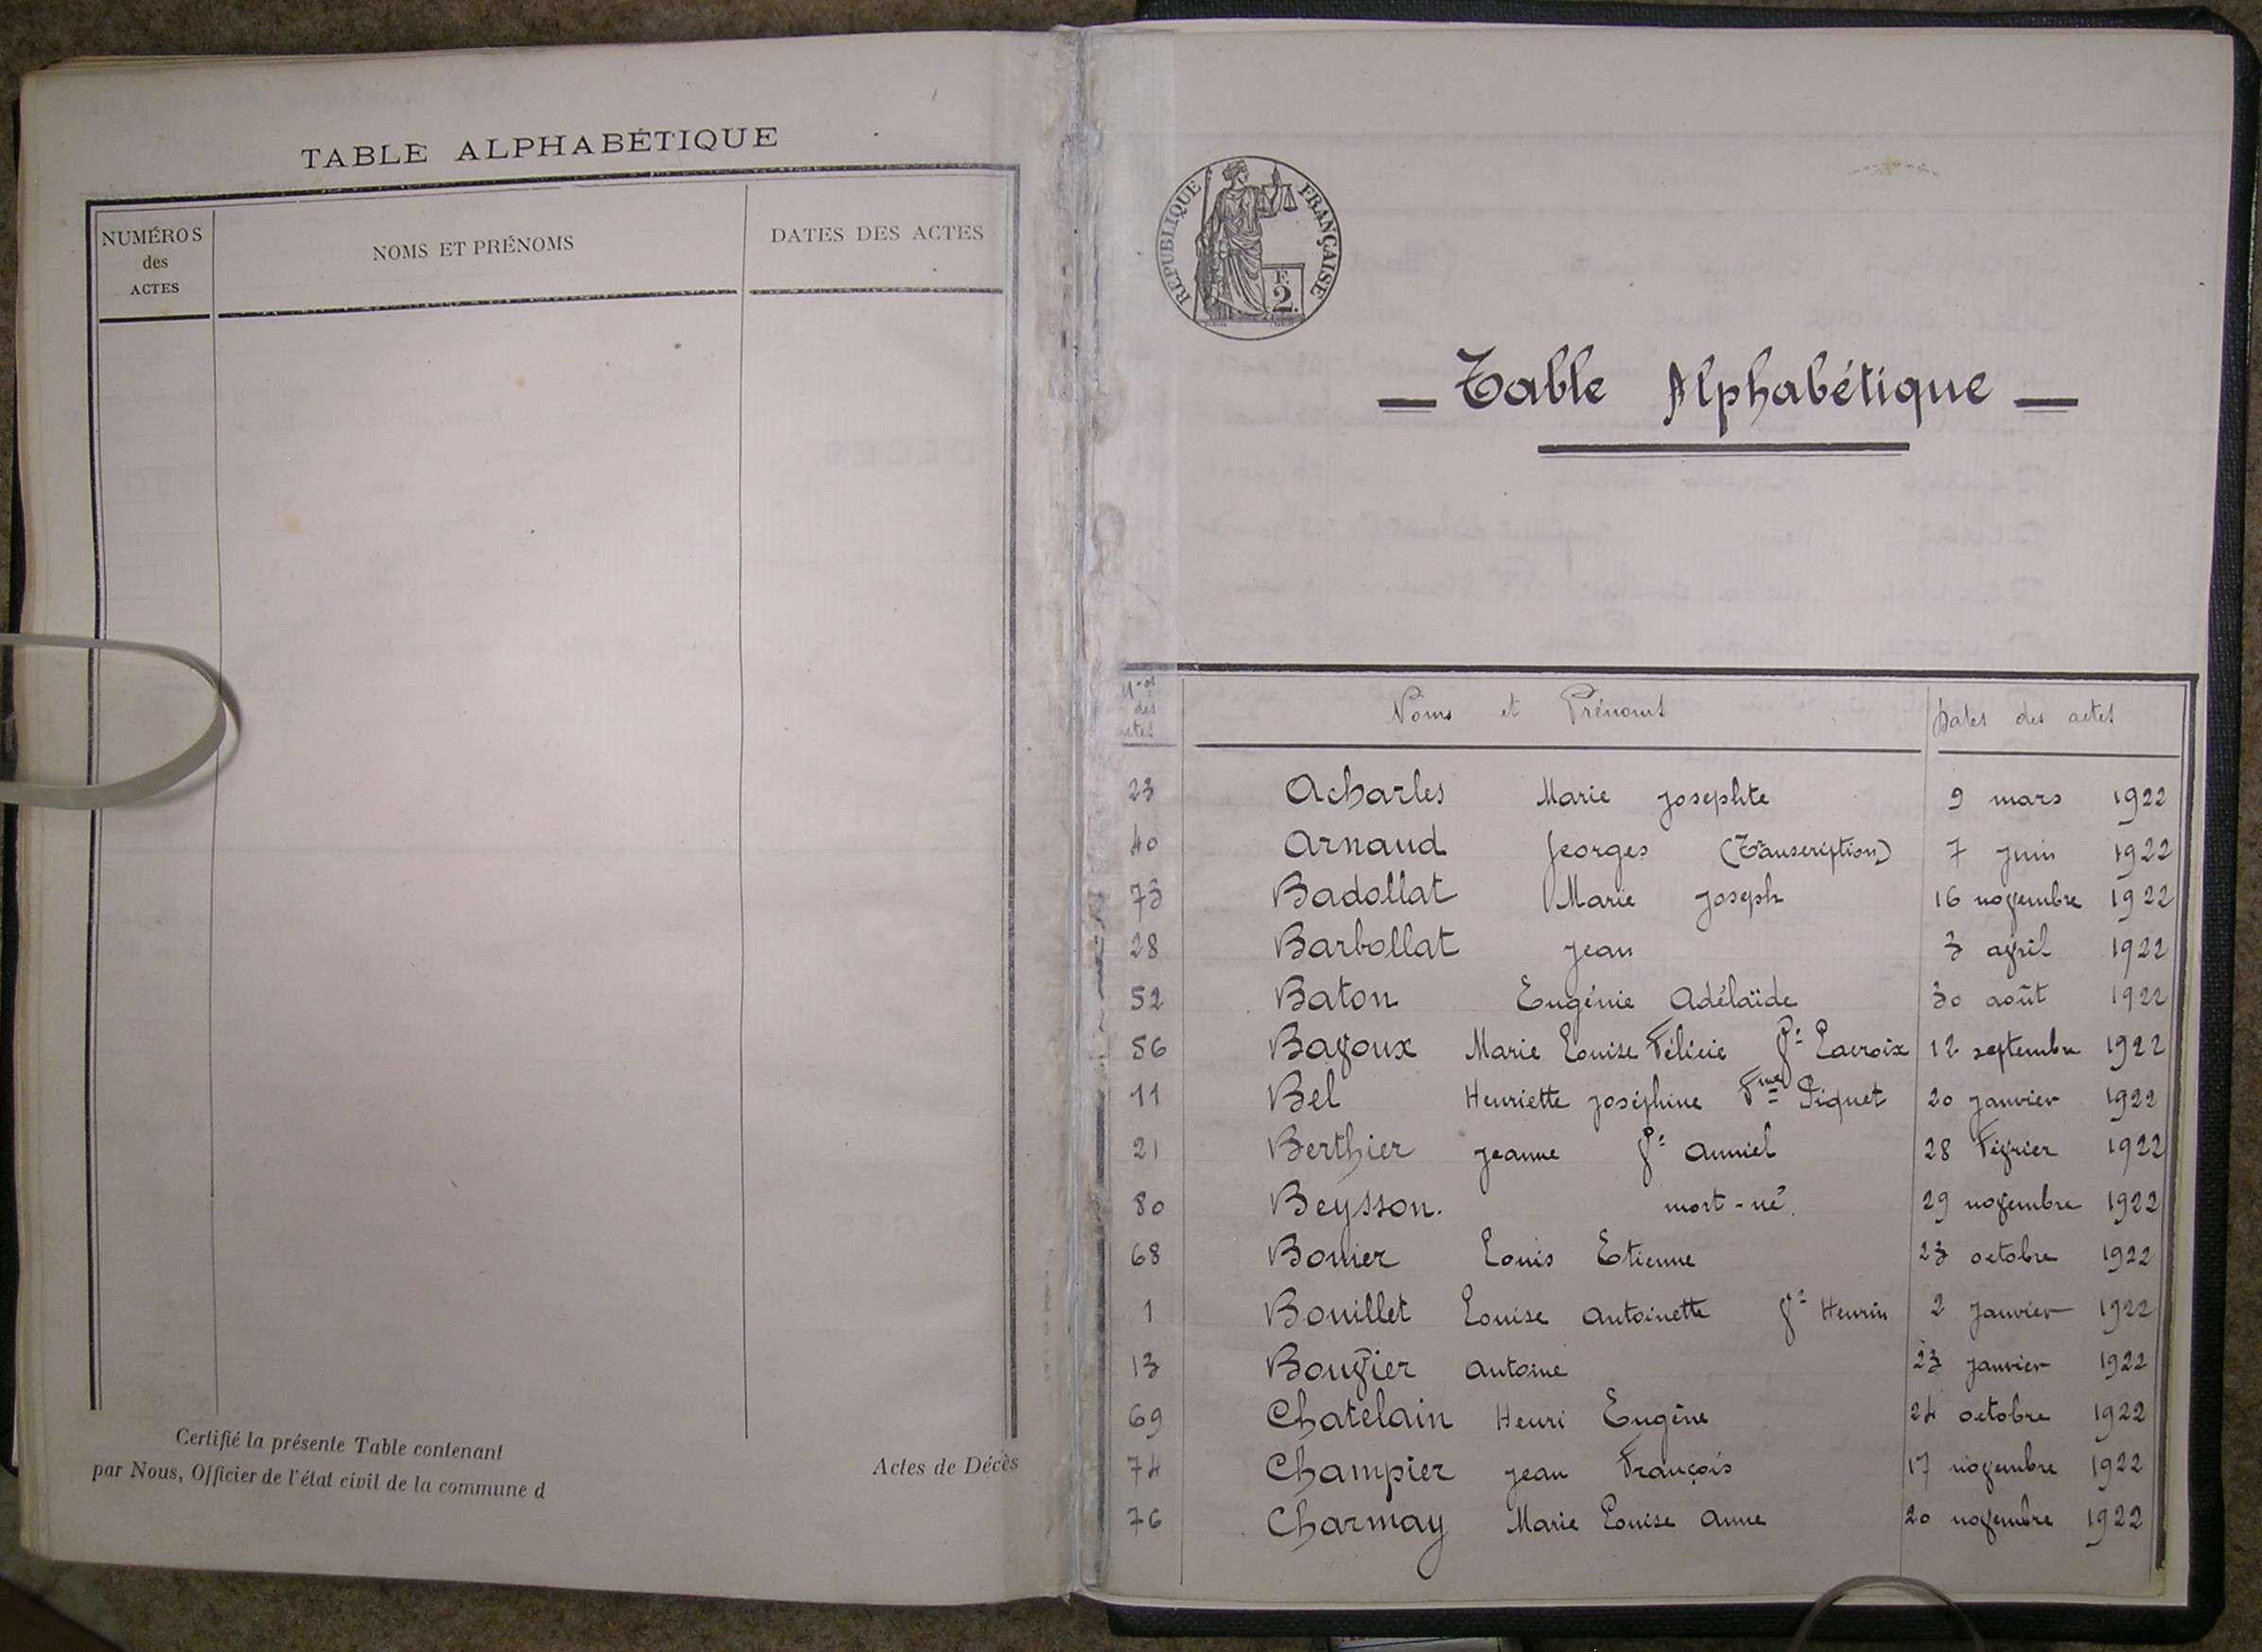 TABLE ALPHABÉTIQUE
NUMÉROS
des
ACTES
NOMS ET PRÉNOMS
DATES DES ACTES
Certifié la présente Table contenant
Actes de Décès
par Nous, Officier de l'état civil de la commune d
RÉPUBLIQUE FRANÇAISE
F.
2.
— Table Alphabétique —
Nos des actes
Noms et Prénoms
Dates des actes
23 Acharles Marie Josephte 9 mars 1922
40 Arnaud Georges (Transcription) 7 juin 1922
73 Badollat Marie Joseph 16 novembre 1922
28 Barbollat Jean 3 avril 1922
52 Baton Eugénie Adélaïde 30 août 1922
56 Bavoux Marie Louise Félicie Vᵉ Lacroix 12 septembre 1922
11 Bel Henriette Joséphine Fᵐᵉ Piquet 20 janvier 1922
21 Berthier Jeanne Vᵉ 28 Février 1922
80 Beysson. mort-né. 29 novembre 1922
68 Bonier Louis Etienne 23 octobre 1922
1 Bouillet Louise Antoinette Vᵉ Henrin 2 Janvier 1922
13 Bouvier Antoine 23 janvier 1922
69 Chatelain Henri Eugène 24 octobre 1922
74 Champier Jean François 17 novembre 1922
76 Charmay Marie Louise Anne 20 novembre 1922